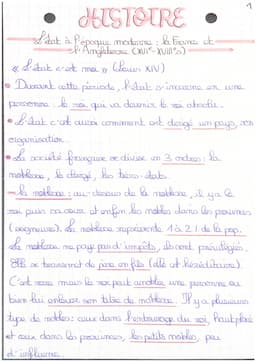 1
HISTOIRE
L'état à l'époque moderne : la France et
l'Angleterre (XVI°-XVIII°s)
« L'état c'est moi » (Louis XIV)
Durant cette période, l'état s'incarne en une
personne : le roi qui va devenir le roi absolu.
L'état c'est aussi comment est dirigé un pays, son
organisation.
La société française se divise en 3 ordres : la
noblesse, le clergé, les tiers-états.
la noblesse : au-dessus de la noblesse, il y a le
roi puis sa cour et enfin les nobles dans les provinces
(seigneurs). La noblesse représente 1 à 2 % de la pop.
La noblesse ne paye pas d'impôts, ils sont privilégiés.
Elle se transmet de père en fils (elle est héréditaire).
C'est rare mais le roi peut anoblir une personne ou
bien lui enlever son titre de noblesse. Il y a plusieurs
type de nobles : ceux dans l'entourage du roi, haut placé
et ceux dans les provinces, les petits nobles, peu
d'influence.